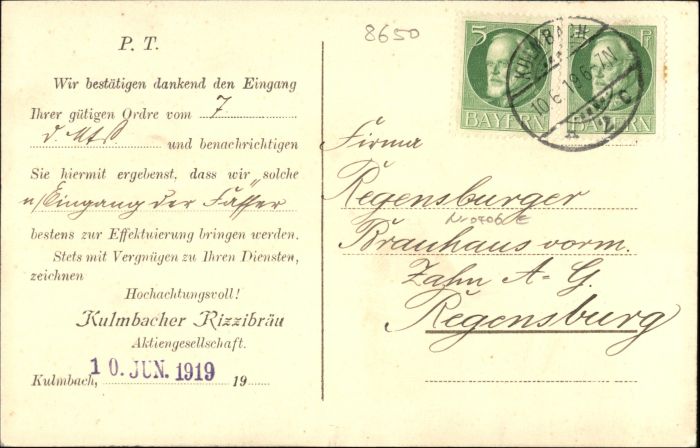 P. T.
Wir bestätigen dankend den Eingang
Ihrer gütigen Ordre vom 7
d. Mts und benachrichtigen
Sie hiermit ergebenst, dass wir solche
n/Eingang der Fässer
bestens zur Effektuierung bringen werden.
Stets mit Vergnügen zu Ihren Diensten,
zeichnen
Hochachtungsvoll!
Kulmbacher Rizzibräu
Aktiengesellschaft.
Kulmbach, 10. JUN. 1919 19
8650
5 Pf
BAYERN BAYERN
KULMBACH
10 6 19 6-7N
2 c
Firma
Regensburger
Brauhaus vorm.
Zahn A-G.
Regensburg